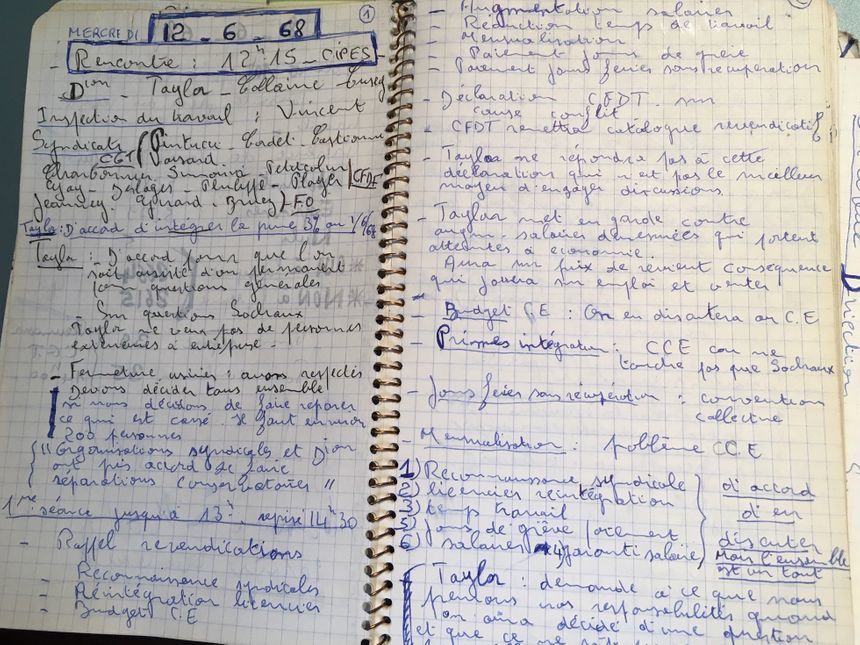 MERCREDI 12 - 6 - 68
1
- Rencontre : 12h15 - CIPES
Don - Taylor -
Inspection du travail : Vincent
Syndicats
CGT
CFDT
FO
Taylor : D'accord d'intégrer la prime 3% au 1/6/68
Taylor : D'accord pour que l'on
soit assisté d'un permanent
pour questions générales
- Sur questions Sochaux
Taylor ne veux pas de personnes
extérieures à entreprise -
- Fermeture usines : avons respectés
Devons décider tous ensemble
si nous décidons de faire réparer
ce qui est cassé. Il faut environ
200 personnes
" Organisations syndicales et Don
ont pris accord de faire
réparations conservatoires "
1ère séance jusqu'à 13h. reprise 14h30
- Rappel revendications
- Reconnaissance syndicales
- Réintégration licenciés
- Budget C.E
- Augmentation salaires
- Réduction temps de travail
- Mensualisation
- Paiement jours de grève
- Paiement jours fériés sans récupération
- Déclaration CFDT sur
cause conflit
- CFDT remettre catalogue revendicatif
- Taylor ne répondra pas à cette
déclaration qui n'est pas le meilleur
moyen d'engager discussions.
- Taylor met en garde contre
augm. salaires démesurées qui portent
atteintes à économie.
Aura sur prix de revient conséquence
qui jouera sur emploi et ventes
- Budget C.E : On en discutera au C.E
- Primes intégration : CCE car ne
touche pas que Sochaux
- Jours fériés sans récupération : convention
collective
- Mensualisation : problème CCE
1) Reconnaissance syndicale
2) licenciés réintégration
3) temps travail
5) Jours de grève paiement
6) salaires 4) garanti salaire
d'accord
d'en
discuter
Mais l'ensemble
est un tout
- Taylor : demande à ce que nous
prenions nos responsabilités quand
on aura décidé d'une question
et que ce ne soit
Direction